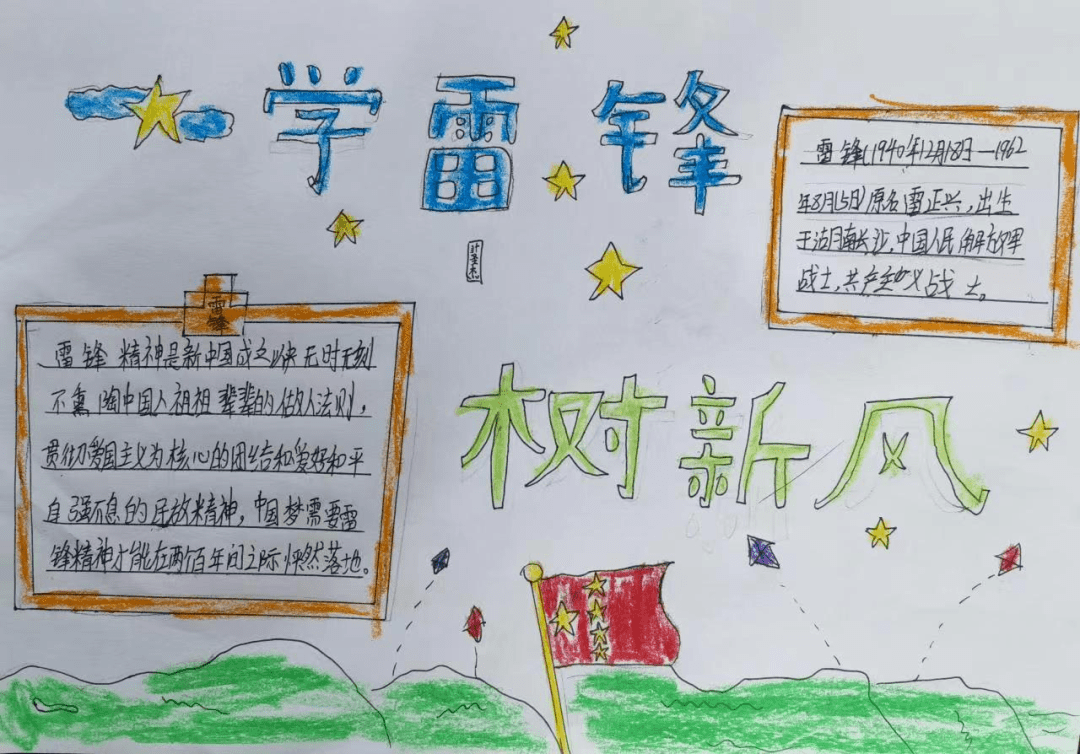 学雷锋
雷锋(1940年12月18日—1962
年8月15日)原名雷正兴,出生
于湖南长沙,中国人民解放军
战士,共产主义战士。
雷锋
雷锋精神是新中国成立以来无时无刻
不熏陶中国人祖祖辈辈的做人法则,
贯彻爱国主义为核心的团结和爱好和平
自强不息的民族精神,中国梦需要雷
锋精神才能在两佰年间之际怦然落地。
树新风